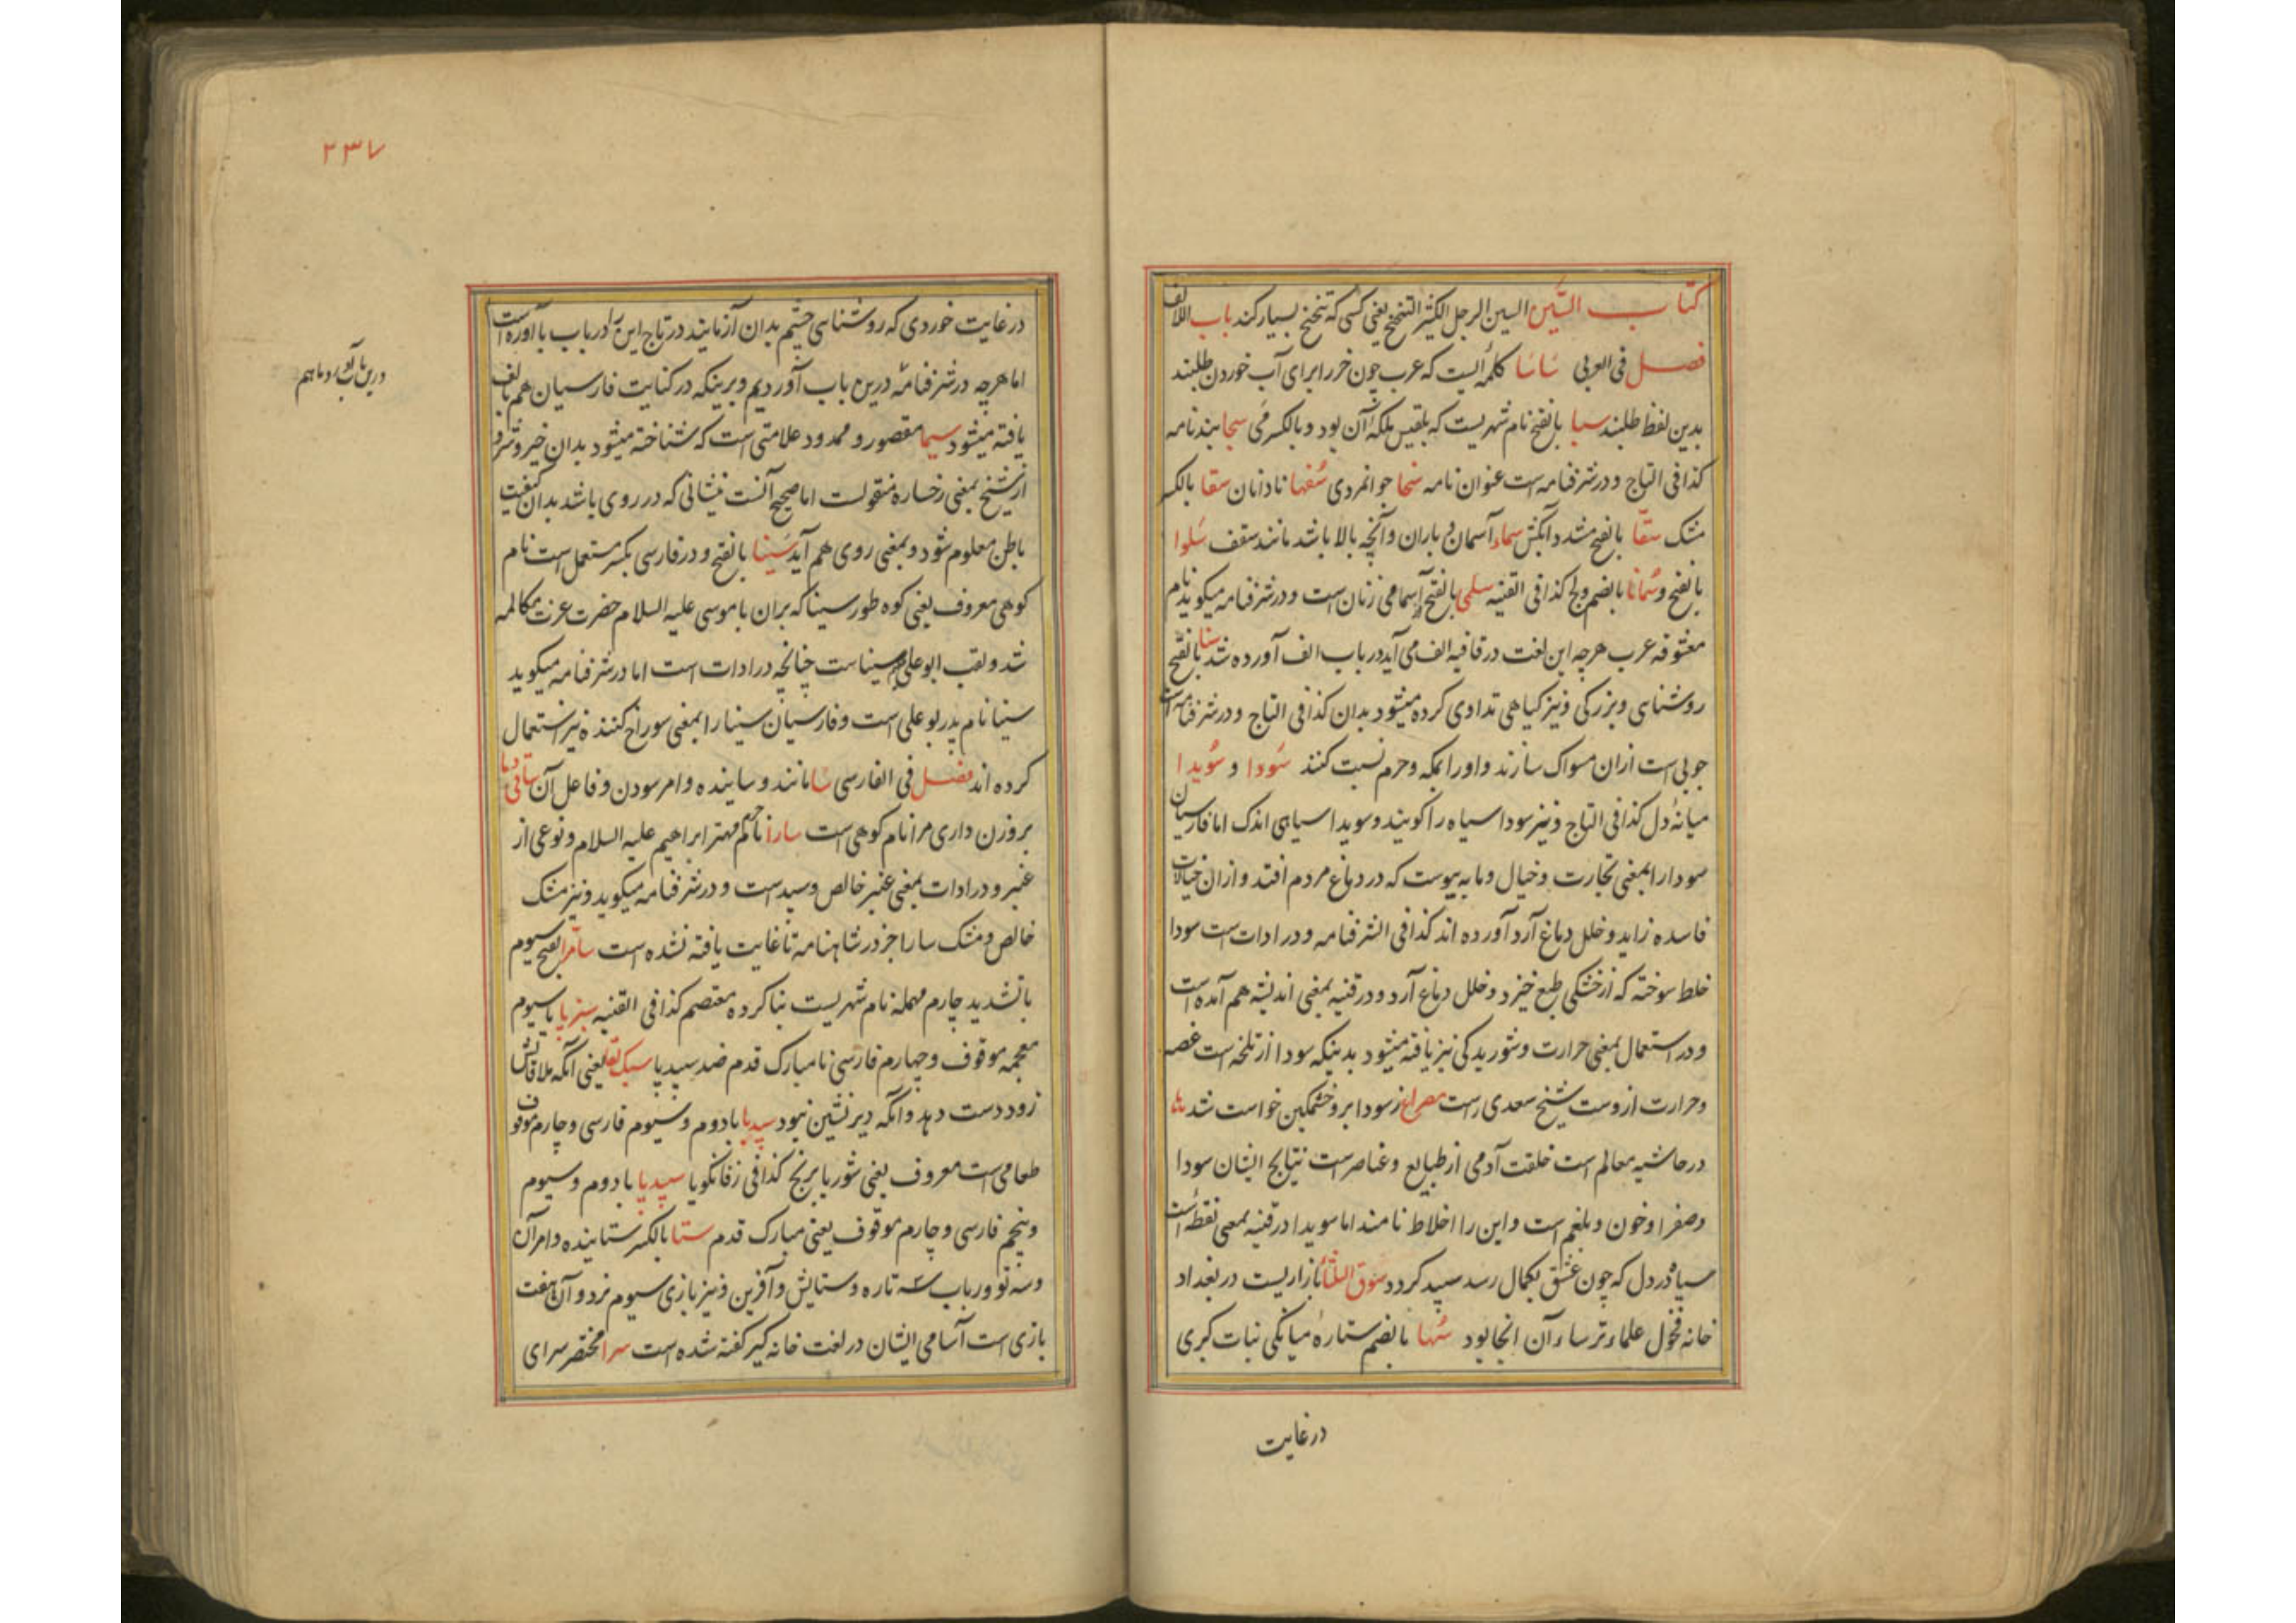 کتاب السّین السین الرجل الکثیر التنحنح یعنی کسی که تنحنح بسیار کند باب الالف
فصل فی العربی سَاسَا کلمه ایست که عرب چون خر را برای آب خوردن طلبند
بدین لفظ طلبند سبا بالفتح نام شهریست که بلقیس ملکه آن بود و بالکسر می سجا بند نامه
کذا فی التاج و در شرفنامه است عنوان نامه سخا جوانمردی سُفها نادانان سقا بالکسر
مشک سقّا بالفتح مشدد آبکش سماء آسمان و باران و آنچه بالا باشد مانند سقف سَلوا
بالفتح و سُمانا بالضم ولج کذا فی القنیه سلمی بالفتح اسامی زنان است و در شرفنامه میگوید نام
معشوقه عرب هرچه این لغت در قافیه الف می آید در باب الف آورده شد سنا بالفتح
روشنایی و بزرگی و نیز گیاهی تداوی کرده میشود بدان کذا فی التاج و در شرفنامه است
چوبی است ازان مسواک سازند و او را بمکه و حرم نسبت کنند سَودا و سُویدا
میانهٔ دل کذا فی التاج و نیز سودا سیاه را گویند و سویدا سیاهی اندک اما فارسیان
سودا را بمعنی تجارت و خیال و مابه پیوست که در دماغ مردم افتد و ازان خیالات
فاسده زاید و خلل دماغ آرد آورده اند کذا فی الشرفنامه و در ادات است سودا
خلط سوخته که از خشکی طبع خیزد و خلل دماغ آرد و در قنیه بمعنی اندیشه هم آمده است
و در استعمال بمعنی حرارت و شوریدگی نیز یافته میشود بدینکه سودا از تلخه است غصه
و حرارت ازوست شیخ سعدی راست مصراع ز سودا برو خشمگین خواست شد
در حاشیه معالم است خلقت آدمی از طبایع و عناصرست نتایج ایشان سودا
و صفرا و خون و بلغم است و این را اخلاط نامند اما سویدا در قنیه بمعنی نقطه است
سیاه در دل که چون عشق بکمال رسد سپید گردد سوق الثلثا بازاریست در بغداد
خانه فحول علماء ترساء آن انجا بود سُها بالضم ستارهٔ میانگی نبات کبری
در غایت
۲۳۷
در غایت خوردی که روشنایی چشم بدان آزمایند در تاج این را در باب با آورده است
اما هرچه در شرفنامه درین باب آوردیم و برینکه در کنایت فارسیان هم بالف
یافته میشود سیما مقصور و ممدود علامتی است که شناخته میشود بدان خیر و شر و
از شیخ بمعنی رخساره منقولست اما صحیح آنست نشانی که در روی باشد بدان کیفیت
باطن معلوم شود و بمعنی روی هم آید سَینا بالفتح و در فارسی بکسر مستعمل است نام
کوهی معروف یعنی کوه طور سینا که بران با موسی علیه السلام حضرت عزت مکالمه
شد و لقب ابو علی سیناست چنانچه در ادات است اما در شرفنامه میگوید
سینا نام پدر بو علی است و فارسیان سینا را بمعنی سوراخ کننده نیز استعمال
کرده اند فصل فی الفارسی سا مانند و ساینده و امر سودن و فاعل آن
بروزن داری مرا نام کوهی است سارا نام حرم مهتر ابراهیم علیه السلام و نوعی از
عنبر و در ادات بمعنی عنبر خالص و سپیدست و در شرفنامه میگوید و نیز مشک
خالص و مشک سارا جز در شاهنامه تا غایت یافته نشده است سامرا بفتح سیوم
باتشدید چارم مهمله نام شهریست بنا کرده معتصم کذا فی القنیه سبزپا با سیوم
معجمه موقوف و چهارم فارسی نامبارک قدم ضد سپید پا سبک لقا یعنی آنکه ملاقاتش
زود دست دهد و آنکه دیر نشین نبود سپیدبا با دوم و سیوم فارسی و چارم موقوف
طعامی است معروف یعنی شوربا برنج کذا فی زفانگویا سپیدپا با دوم و سیوم
و پنجم فارسی و چارم موقوف یعنی مبارک قدم ستا بالکسر ستاینده و امر آن
و سه تو و رباب سه تاره و ستایش و آفرین و نیز بازی سیوم نرد و آن هفت
بازی است آسامی ایشان در لغت خانه گیر گفته شده است سرا مختصر سرای